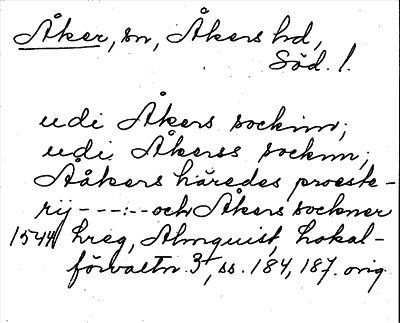 Åker, sn, Åkers hd,
Söd. l.
udi Åkers sockinn;
udi Åkerss socknn;
Aåkers häredes proeste-
rij ---:-- och Åkers sockner
1544 hreg, Almquist, Lokal-
förvaltn. 3, ss. 184, 187. orig